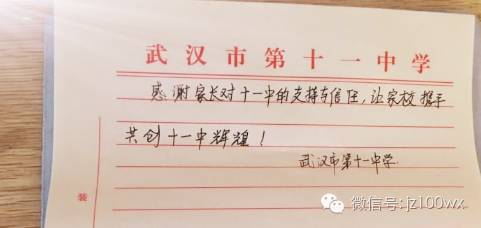 武汉市第十一中学
感谢家长对十一中的支持与信任，让家校携手
共创十一中辉煌！
武汉市第十一中学
装
微信号:jz100wx